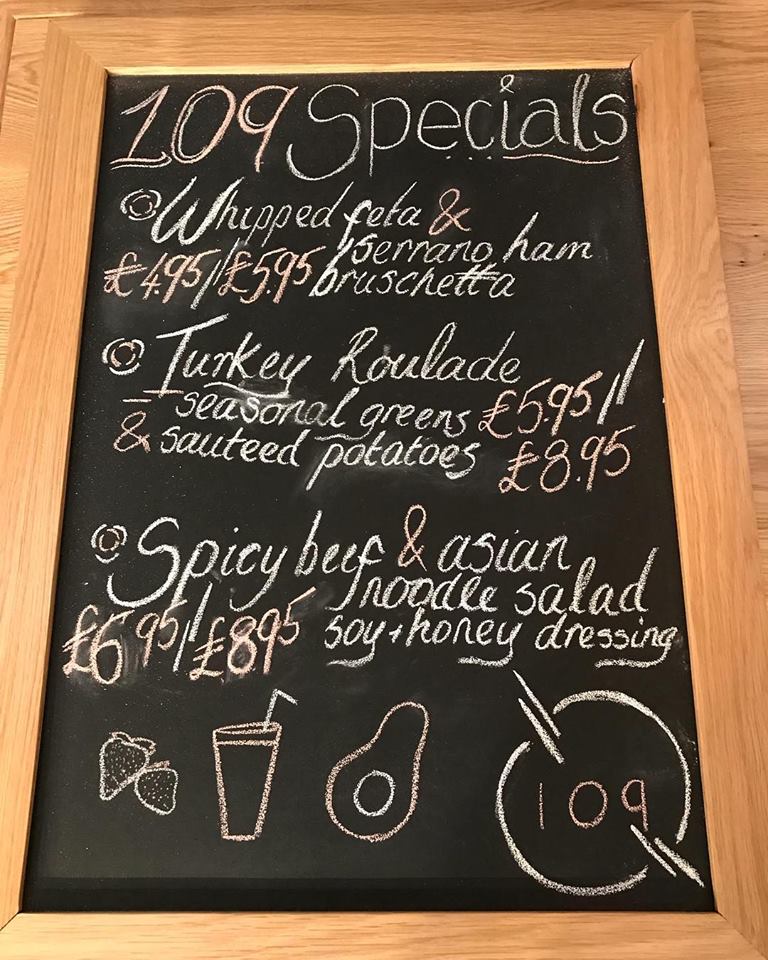 109 Specials
Whipped feta &
serrano ham
£4.95//£5.95 bruschetta
Turkey Roulade
seasonal greens £5.95//
& sauteed potatoes £8.95
Spicy beef & asian
noodle salad
£6.95//£8.95 soy+honey dressing
109